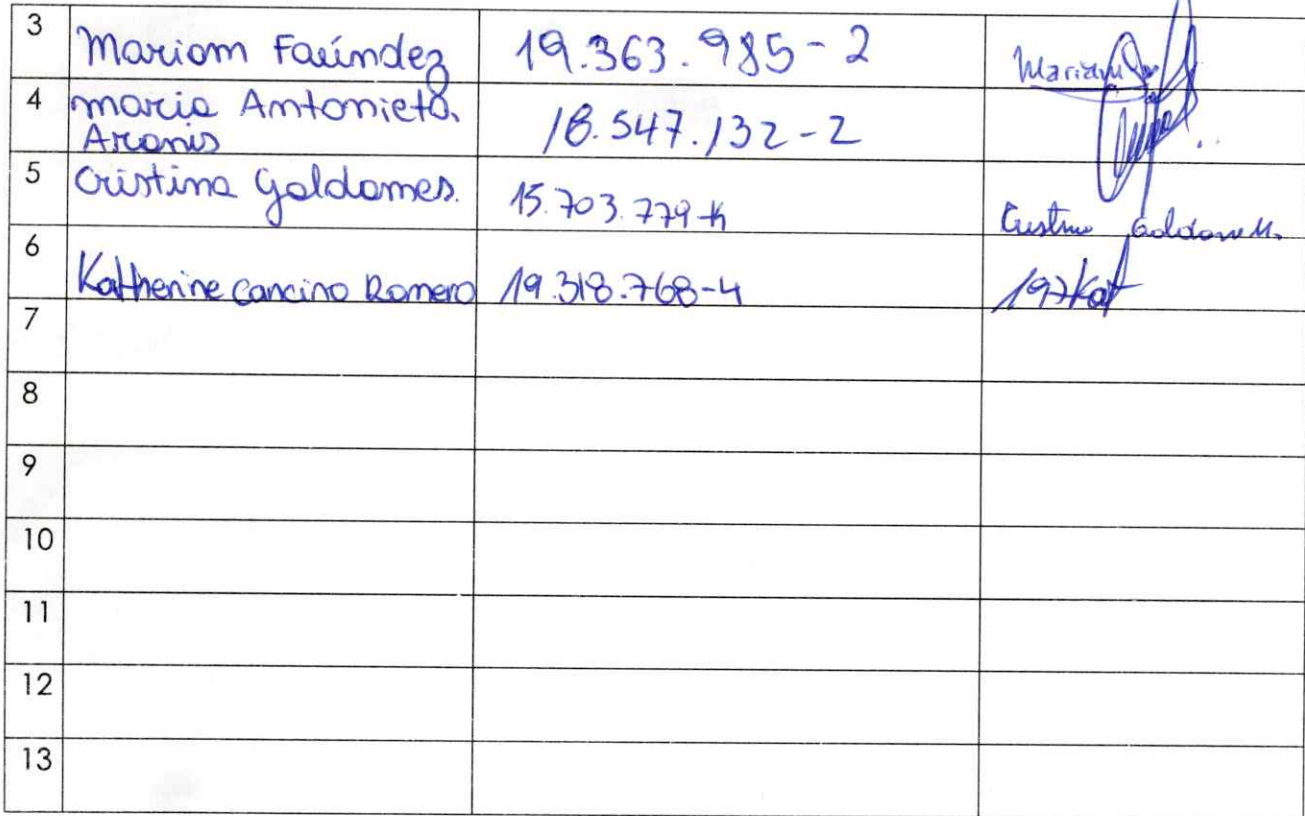 3 Mariam Faúndez 19.363.985-2 Mariam
4 maria Antonieta. 18.547.132-2
Aranis
5 Cristina Galdames. 15.703.779-k Cristina Galdames.
6 Katherine cancino Romero 19.318.768-4
7
8
9
10
11
12
13